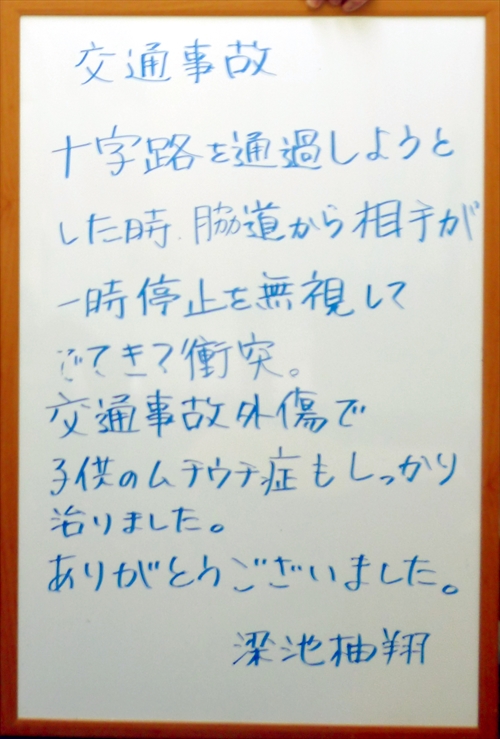 交通事故
十字路を通過しようと
した時、脇道から相手が
一時停止を無視して
でてきて衝突。
交通事故外傷で
子供のムチウチ症もしっかり
治りました。
ありがとうございました。
梁池柚翔